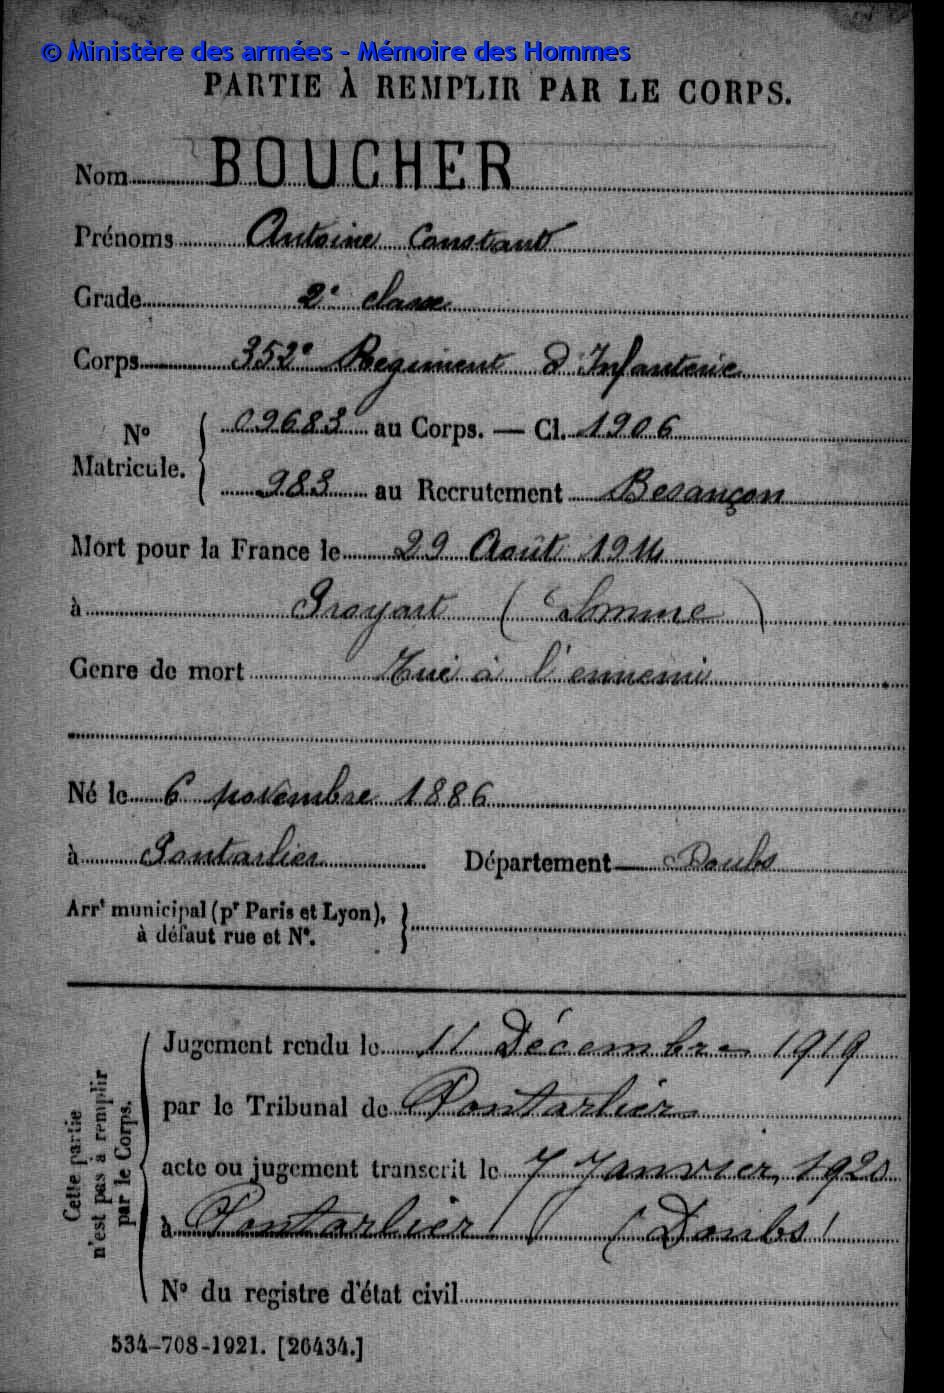 © Ministère des armées - Mémoire des Hommes
PARTIE À REMPLIR PAR LE CORPS.
Nom BOUCHER
Prénoms Antoine Constant
Grade 2e classe
Corps 352e Régiment d'Infanterie
No Matricule. 09683 au Corps. — Cl. 1906
983 au Recrutement Besançon
Mort pour la France le 29 Août 1914
à Proyart (Somme)
Genre de mort Tué à l'ennemi
Né le 6 novembre 1886
à Pontarlier Département — Doubs
Arrt municipal (pr Paris et Lyon),
à défaut rue et No.
Cette partie
n'est pas à remplir
par le Corps.
Jugement rendu le 11 Décembre 1919
par le Tribunal de Pontarlier
acte ou jugement transcrit le 7 Janvier 1920
à Pontarlier (Doubs)
No du registre d'état civil
534-708-1921. [26434.]